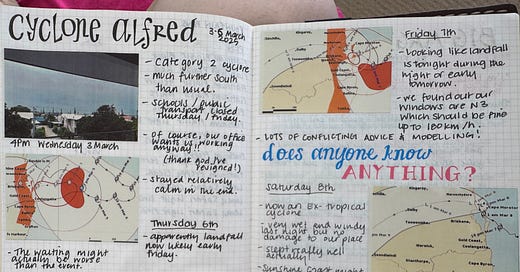 CYCLONE ALFRED
3-8 March
2025
- Category 2 cyclone
- Much further South
than usual.
- Schools / public
transport closed
Thursday / Friday.
- Of course, our office
wants us working
anyway!
(thank god I've
resigned!)
- Stayed relatively
calm in the end.
4PM Wednesday 3 March
- The waiting might
actually be worse
than the event.
Thursday 6th
- apparently landfall
now likely early
Friday.
Friday 7th
- Looking like landfall
is tonight during the
night or early
tomorrow.
- We found out our
windows are N3
which should be fine
up to 180km/h.
- LOTS OF CONFLICTING ADVICE & MODELLING!
does anyone know
ANYTHING?
Saturday 8th
- now an ex-tropical
cyclone
- very wet and windy
last night but no
damage to our place
- slept really well
actually!
- Sunshine Coast might
Kingaroy
Brisbane
Toowoomba
Gold Coast
Coolangatta
Cape Moreton